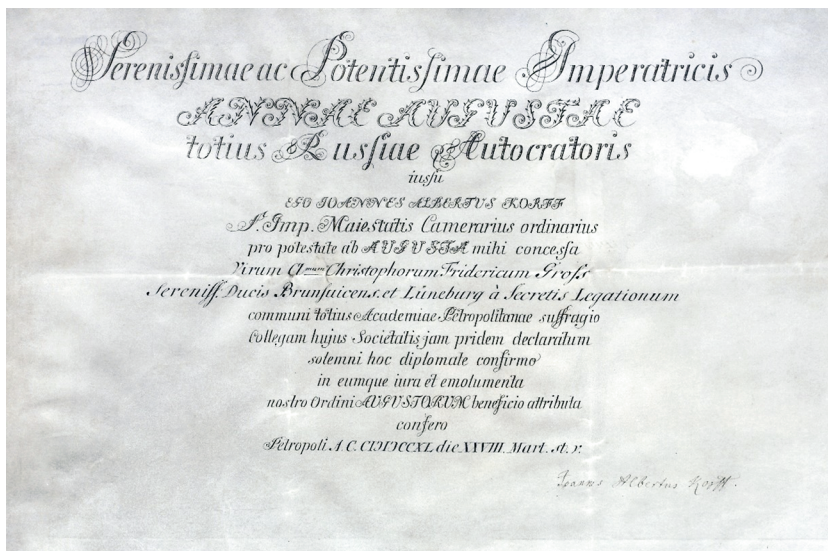 Serenissimae ac Potentissimae Imperatricis
ANNAE AUGUSTAE
totius Russiae Autocratoris
iussu
EGO IOANNES ALBERTUS KORFF
S. Imp. Maiestatis Camerarius ordinarius
pro potestate ab AUGUSTA mihi concessa
Virum Cl.mum Christophorum Fridericum Gross
Sereniss. Ducis Brunsuicens. et Lüneburg à Secretis Legationum
communi totius Academiae Petropolitanae suffragio
Collegam hujus Societatis jam pridem declaratum
solemni hoc diplomate confirmo
in eumque iura et emolumenta
nostro Ordini AUGUSTORUM beneficio attributa
confero
Petropoli A. C. CIƆIƆCCXL die XXVIII. Mart. st. v.
Ioannes Albertus Korff.